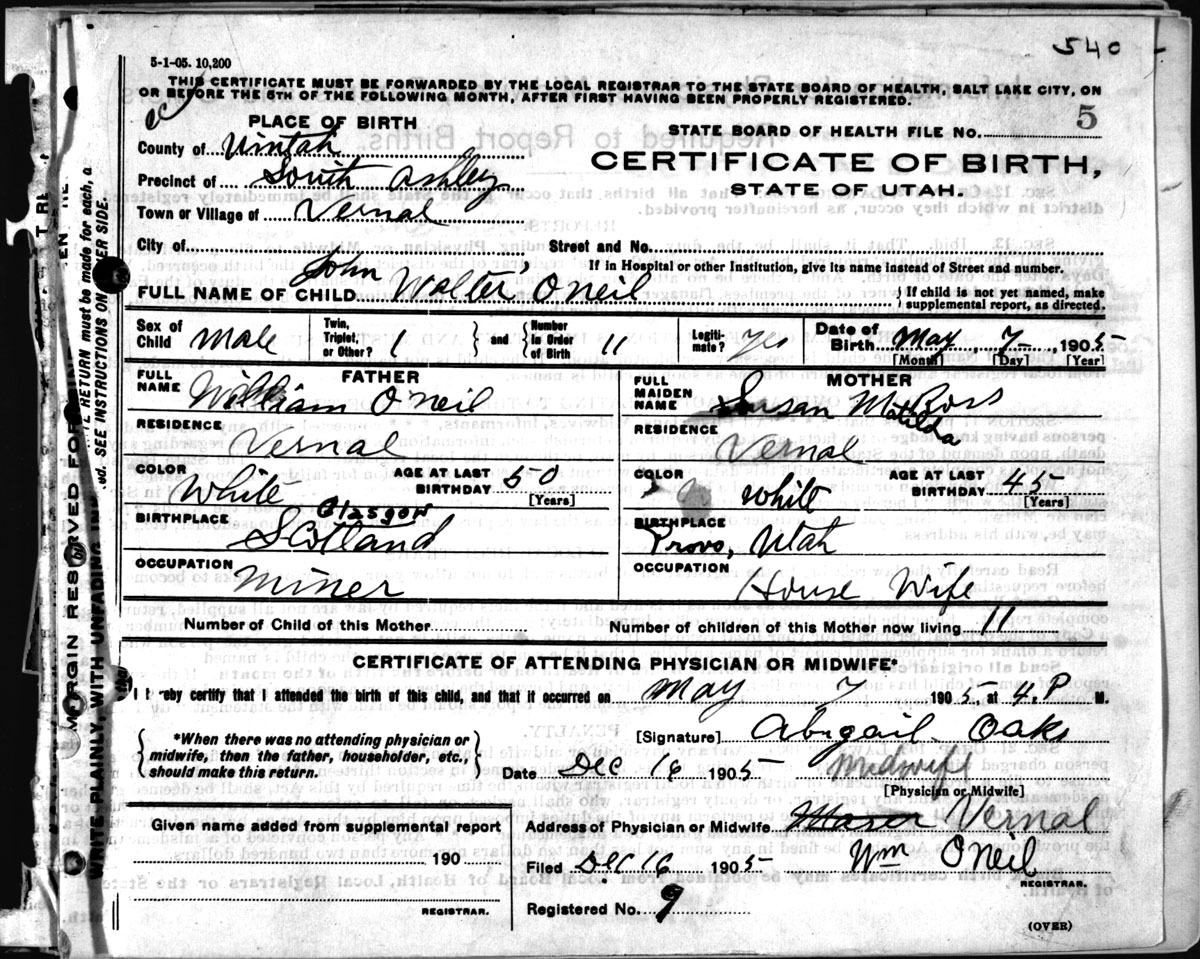 540 -
5-1-05. 10,200
THIS CERTIFICATE MUST BE FORWARDED BY THE LOCAL REGISTRAR TO THE STATE BOARD OF HEALTH, SALT LAKE CITY, ON
OR BEFORE THE 5TH OF THE FOLLOWING MONTH, AFTER FIRST HAVING BEEN PROPERLY REGISTERED.
PLACE OF BIRTH
STATE BOARD OF HEALTH FILE NO. 5
County of Uintah
CERTIFICATE OF BIRTH,
Precinct of South Ashley
STATE OF UTAH.
Town or Village of Vernal
City of Street and No.
If in Hospital or other Institution, give its name instead of Street and number.
FULL NAME OF CHILD John Walter O'neil { If child is not yet named, make
supplemental report, as directed.
Sex of Child Male Twin, Triplet, or Other? 1 } and { Number in Order of Birth 11 Legiti-mate? Yes Date of Birth May 7 1905
[Month] [Day] [Year]
FATHER
FULL NAME William O'neil
RESIDENCE Vernal
COLOR White AGE AT LAST BIRTHDAY 50 [Years]
BIRTHPLACE Glasgow
Scotland
OCCUPATION Miner
MOTHER
FULL MAIDEN NAME Susan Matilda Ross
RESIDENCE Vernal
COLOR White AGE AT LAST BIRTHDAY 45 [Years]
BIRTHPLACE
Provo, Utah
OCCUPATION
House Wife
Number of Child of this Mother Number of children of this Mother now living 11
CERTIFICATE OF ATTENDING PHYSICIAN OR MIDWIFE*
I hereby certify that I attended the birth of this child, and that it occurred on May 7 1905, at 4. P M.
{ *When there was no attending physician or
midwife, then the father, householder, etc.,
should make this return. }
[Signature] Abigail Oaks
Date Dec 16 1905 Midwife
[Physician or Midwife]
Given name added from supplemental report
190
REGISTRAR.
Address of Physician or Midwife Maser Vernal
Filed Dec 16 1905 Wm O'Neil
REGISTRAR.
Registered No. 9
(OVER)
MARGIN RESERVED FOR
WRITE PLAINLY, WITH UNFADING INK
RETURN must be made for each, a
ed. SEE INSTRUCTIONS ON OTHER SIDE.